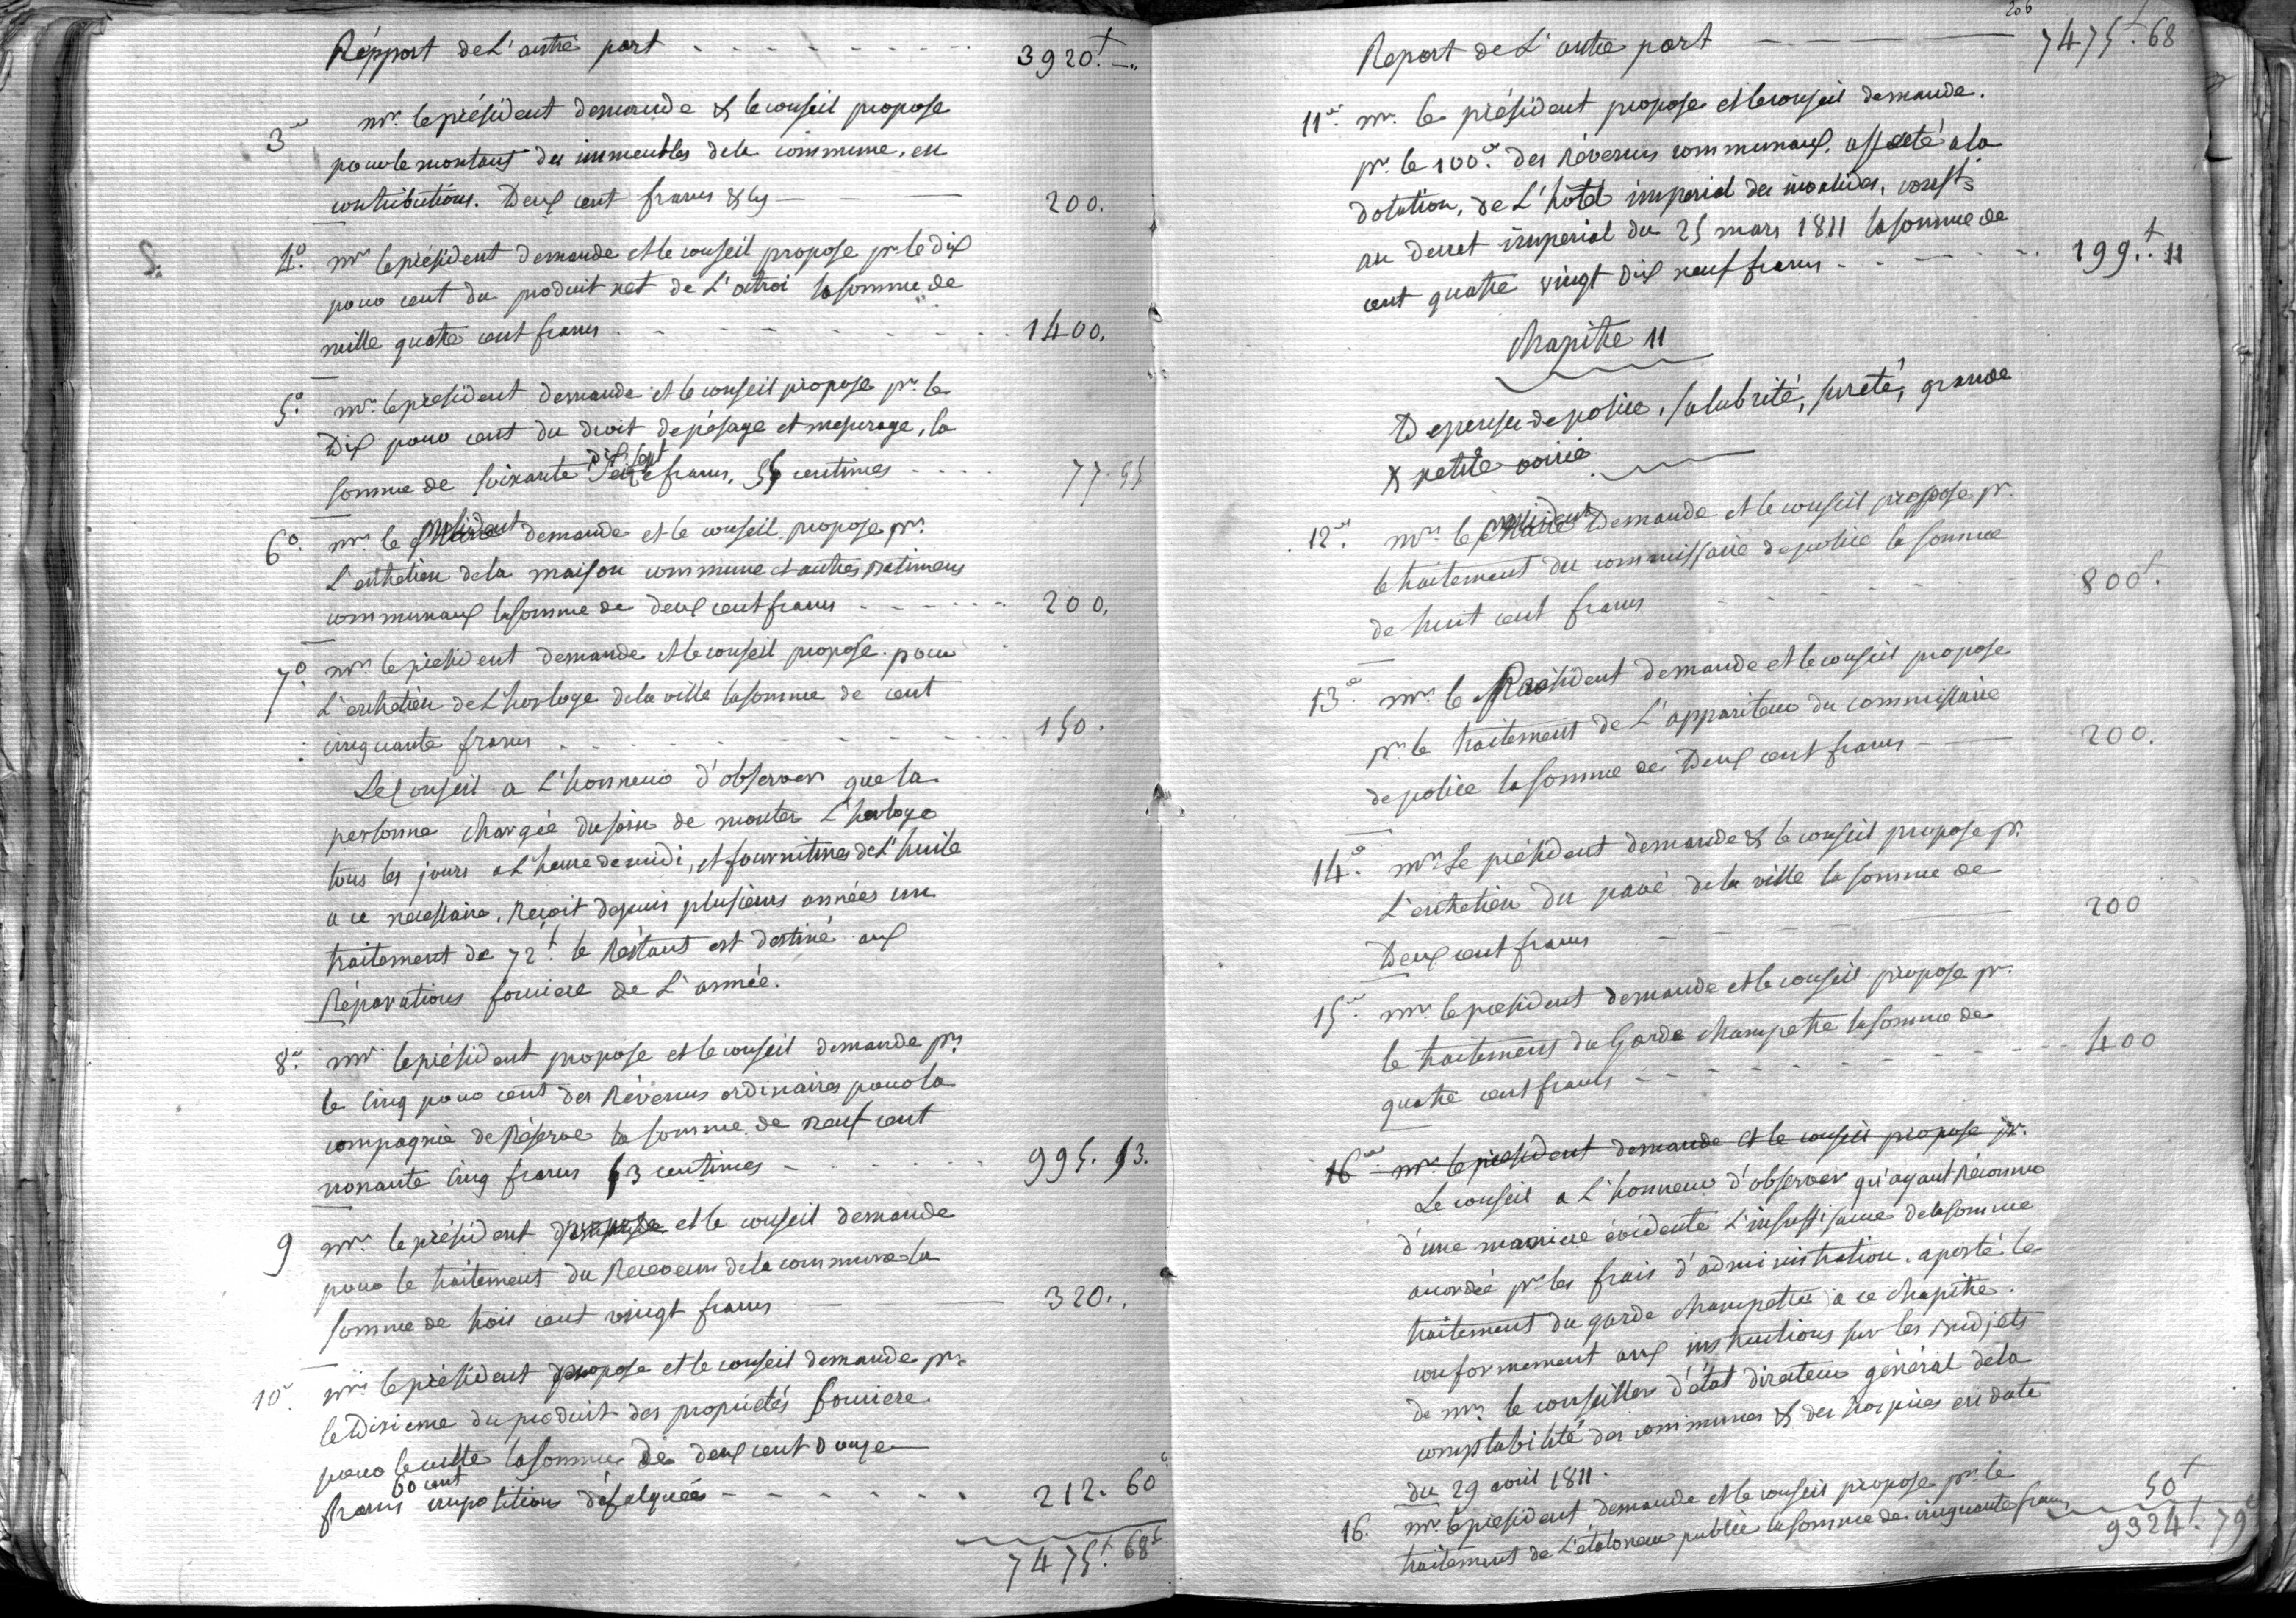 Répport de L'autre part - - - - - - - - - 3920.f —"
3e mr. le président demande & le conseil propose
pour le montant des immeubles de la commune, en
contributions. Deux cent francs & ey — — — 200.
4o. mr le président demande et le conseil propose pr le dix
pour cent du produit net de L'octroi la somme de
mille quatre cent francs - - - - - - - 1400.
5o. mr. le president demande et le conseil propose pr. le
Dix pour cent du droit depésage et mesurage, la
dix sept
somme de soixante francs, 55 centimes - - - - 77. 55
6o. mr. le président demande et le conseil propose pr.
L'entretien de la maison commune et autres batimens
communaux la somme de deux cent francs - - - - - 200.
7o. mr. le président demande et le conseil propose pour
L'entretien de L'horloge de la ville la somme de cent
cinquante francs - - - - - - - - - 150.
Le Conseil a L'honneur d'observer que la
personne chargée du soin de monter L'horloge
tous les jours a L'heure de midi, et fournitures de L'huile
a ce necessaire, reçoit depuis plusieurs années un
traitement de 72.f le Réstant est destiné aux
Réparations fonciere de L'année.
8e. mr le président propose et le conseil demande pr.
le cinq pour cent des Révenus ordinaires pour la
compagnie de Réserve la somme de neuf cent
nonante cinq francs 53 centimes - - - - - - - 995. 53.
9 mr. le président propose et le conseil demande
pour le traitement du Receveur de la commune la
somme de trois cent vingt francs — — — 320..
10e. mr. le président propose et le conseil demande pr.
le Dixieme du produit des propriétés fonciere
pour le culte la somme de deux cent douze
60 cent
francs impositions défalquées - - - - - - - 212. 60c
7475.f 68c
206
Report de L'autre part — — — 7475.f 68
11e. mr. le président propose et le conseil demande.
pr. le 100.e des Révenus communaux, affecté a la
dotation, de L'hôtel imperial des invalides, conft.
au decret imperial du 25 mars 1811 la somme de
cent quatre vingt dix neuf francs - - - - - - 199.f 11
Chapitre 11
Depenses de police, salubrité, sureté, grande
& petite voirie
12e. mr. le président demande et le conseil propose pr.
le traitement du commissaire de police la somme
de huit cent francs - - - - - - 800f.
13e. mr. le Président demande et le conseil propose
pr. le traitement de L'appariteur du commissaire
de police la somme de Deux cent francs - — 200.
14e. mr. Le président demande & le conseil propose pr.
L'entretien du pavé de la ville la somme de
Deux cent francs - - - - — 200
15e. mr. le president demande et le conseil propose pr.
le traitement du Garde champetre la somme de
quatre cent francs - - - - - - - - - - 400
16e mr. le president demande et le conseil propose pr.
Le conseil a L'honneur d'observer qu'ayant Réconnu
d'une maniere évidente L'insuffisance de la somme
accordée pr les frais d'administration, a porté le
traitement du garde champetre a ce chapitre.
conformement aux instructions sur les budjets
de mr. le conseiller d'état directeur général de la
comptabilité des communes & des hospices en date
du 29 avril 1811.
16. mr. le president demande et le conseil propose pr. le
traitement de L'étaloneur public la somme de cinquante francs 50f
9324f. 79c